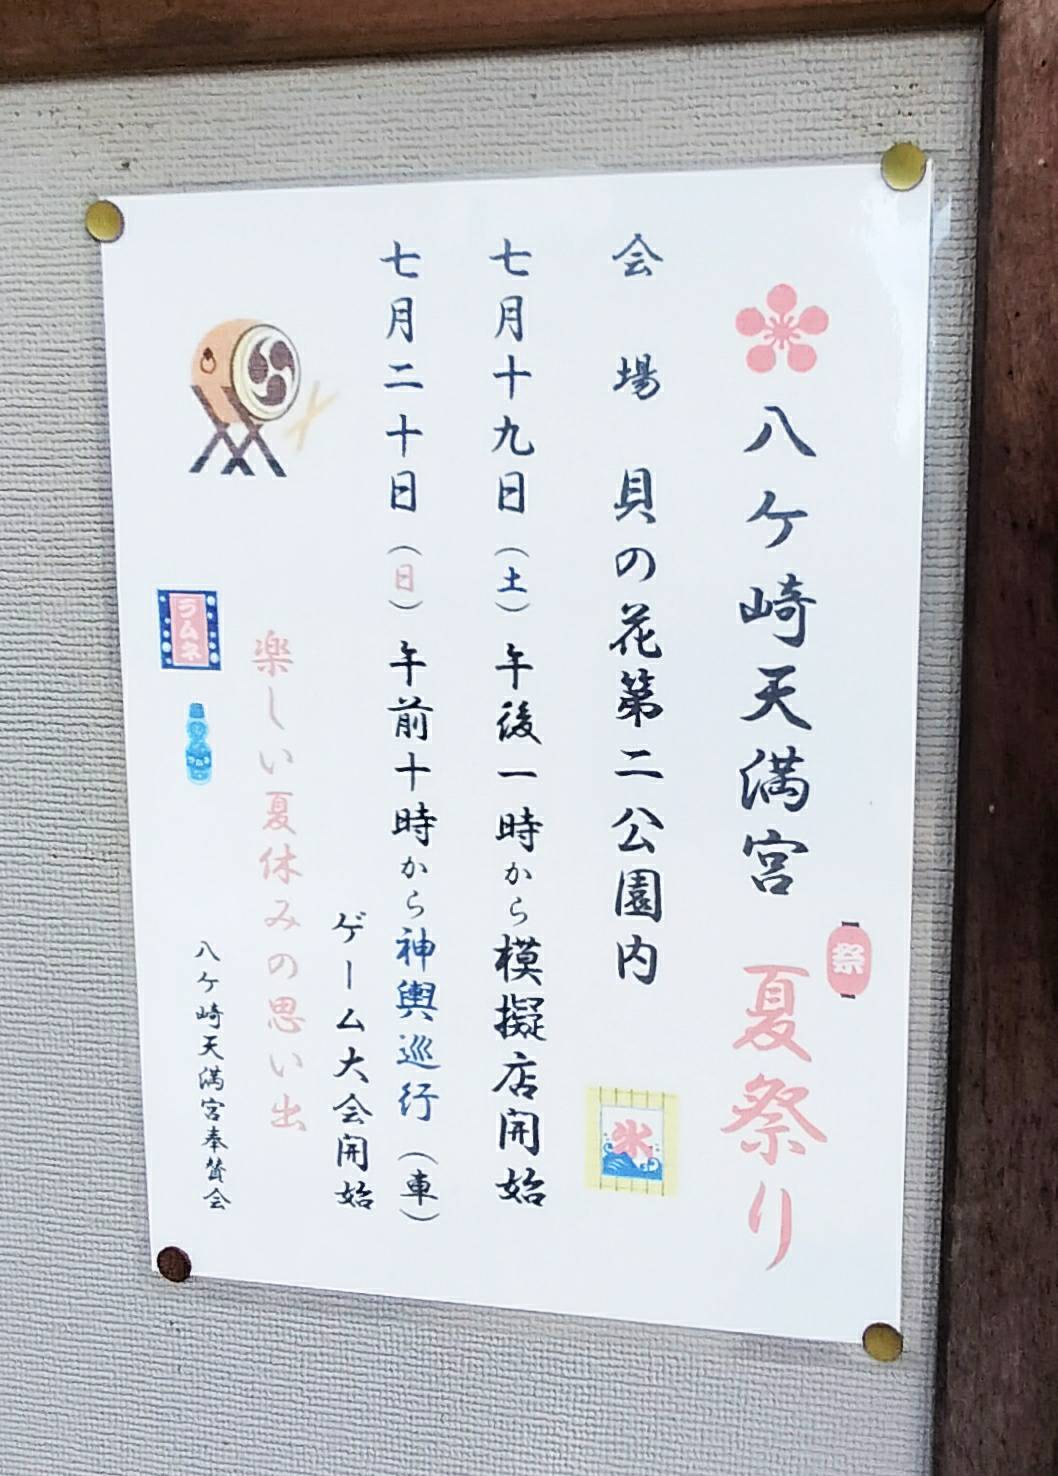 八ケ崎天満宮 夏祭り
祭
会 場 貝の花第二公園内
氷
七月十九日（土）午後一時から模擬店開始
七月二十日（日）午前十時から神輿巡行（車）
ゲーム大会開始
楽しい夏休みの思い出
ラムネ
ラムネ
八ケ崎天満宮奉賛会